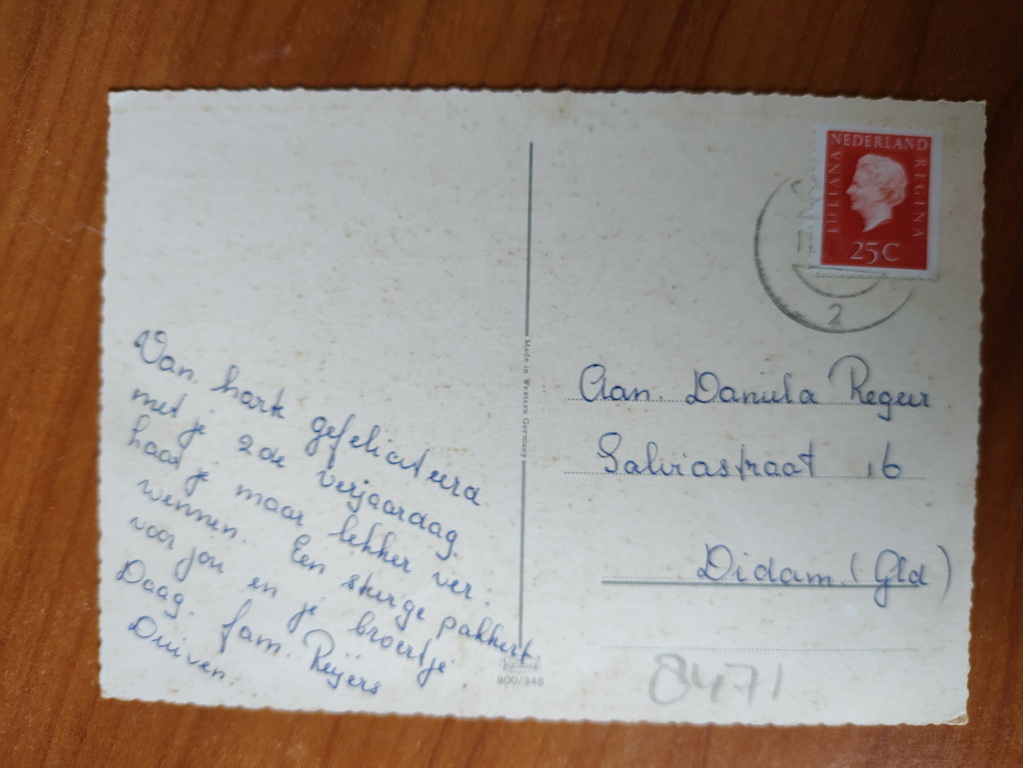 Van hart gefeliciteerd
met je 2de verjaardag.
haat je maar lekker ver.
wennen. Een stevige pakkert
voor jou en je broertje.
Daag. fam. Reijers
Duiven.
Made in Western Germany
Krüger
900/346
NEDERLAND
JULIANA
REGINA
25C
2
Aan. Daniela Regeer
Salviastraat 16
Didam. (Gld)
8471